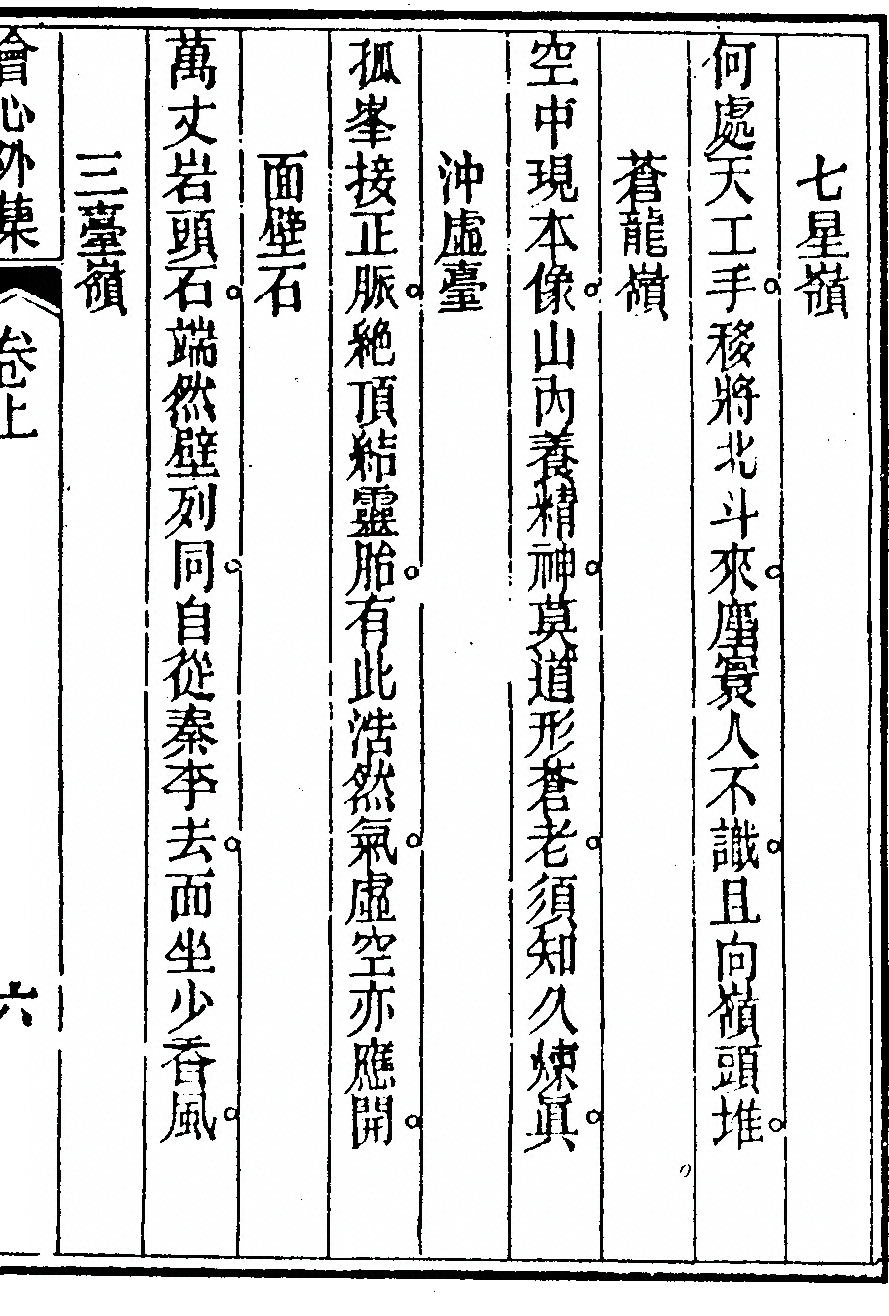 七星嶺
何處天工手。移將北斗來。塵寰人不識。且向嶺頭堆。
蒼龍嶺
空中現本像。山內養精神。莫道形蒼老。須知久煉眞。
沖虛臺
孤峯接正脈。絕頂結靈胎。有此浩然氣。虛空亦應開。
面壁石
萬丈岩頭石。端然壁列同。自從秦李去。面坐少香風。
三臺嶺
會心外集 卷上 六